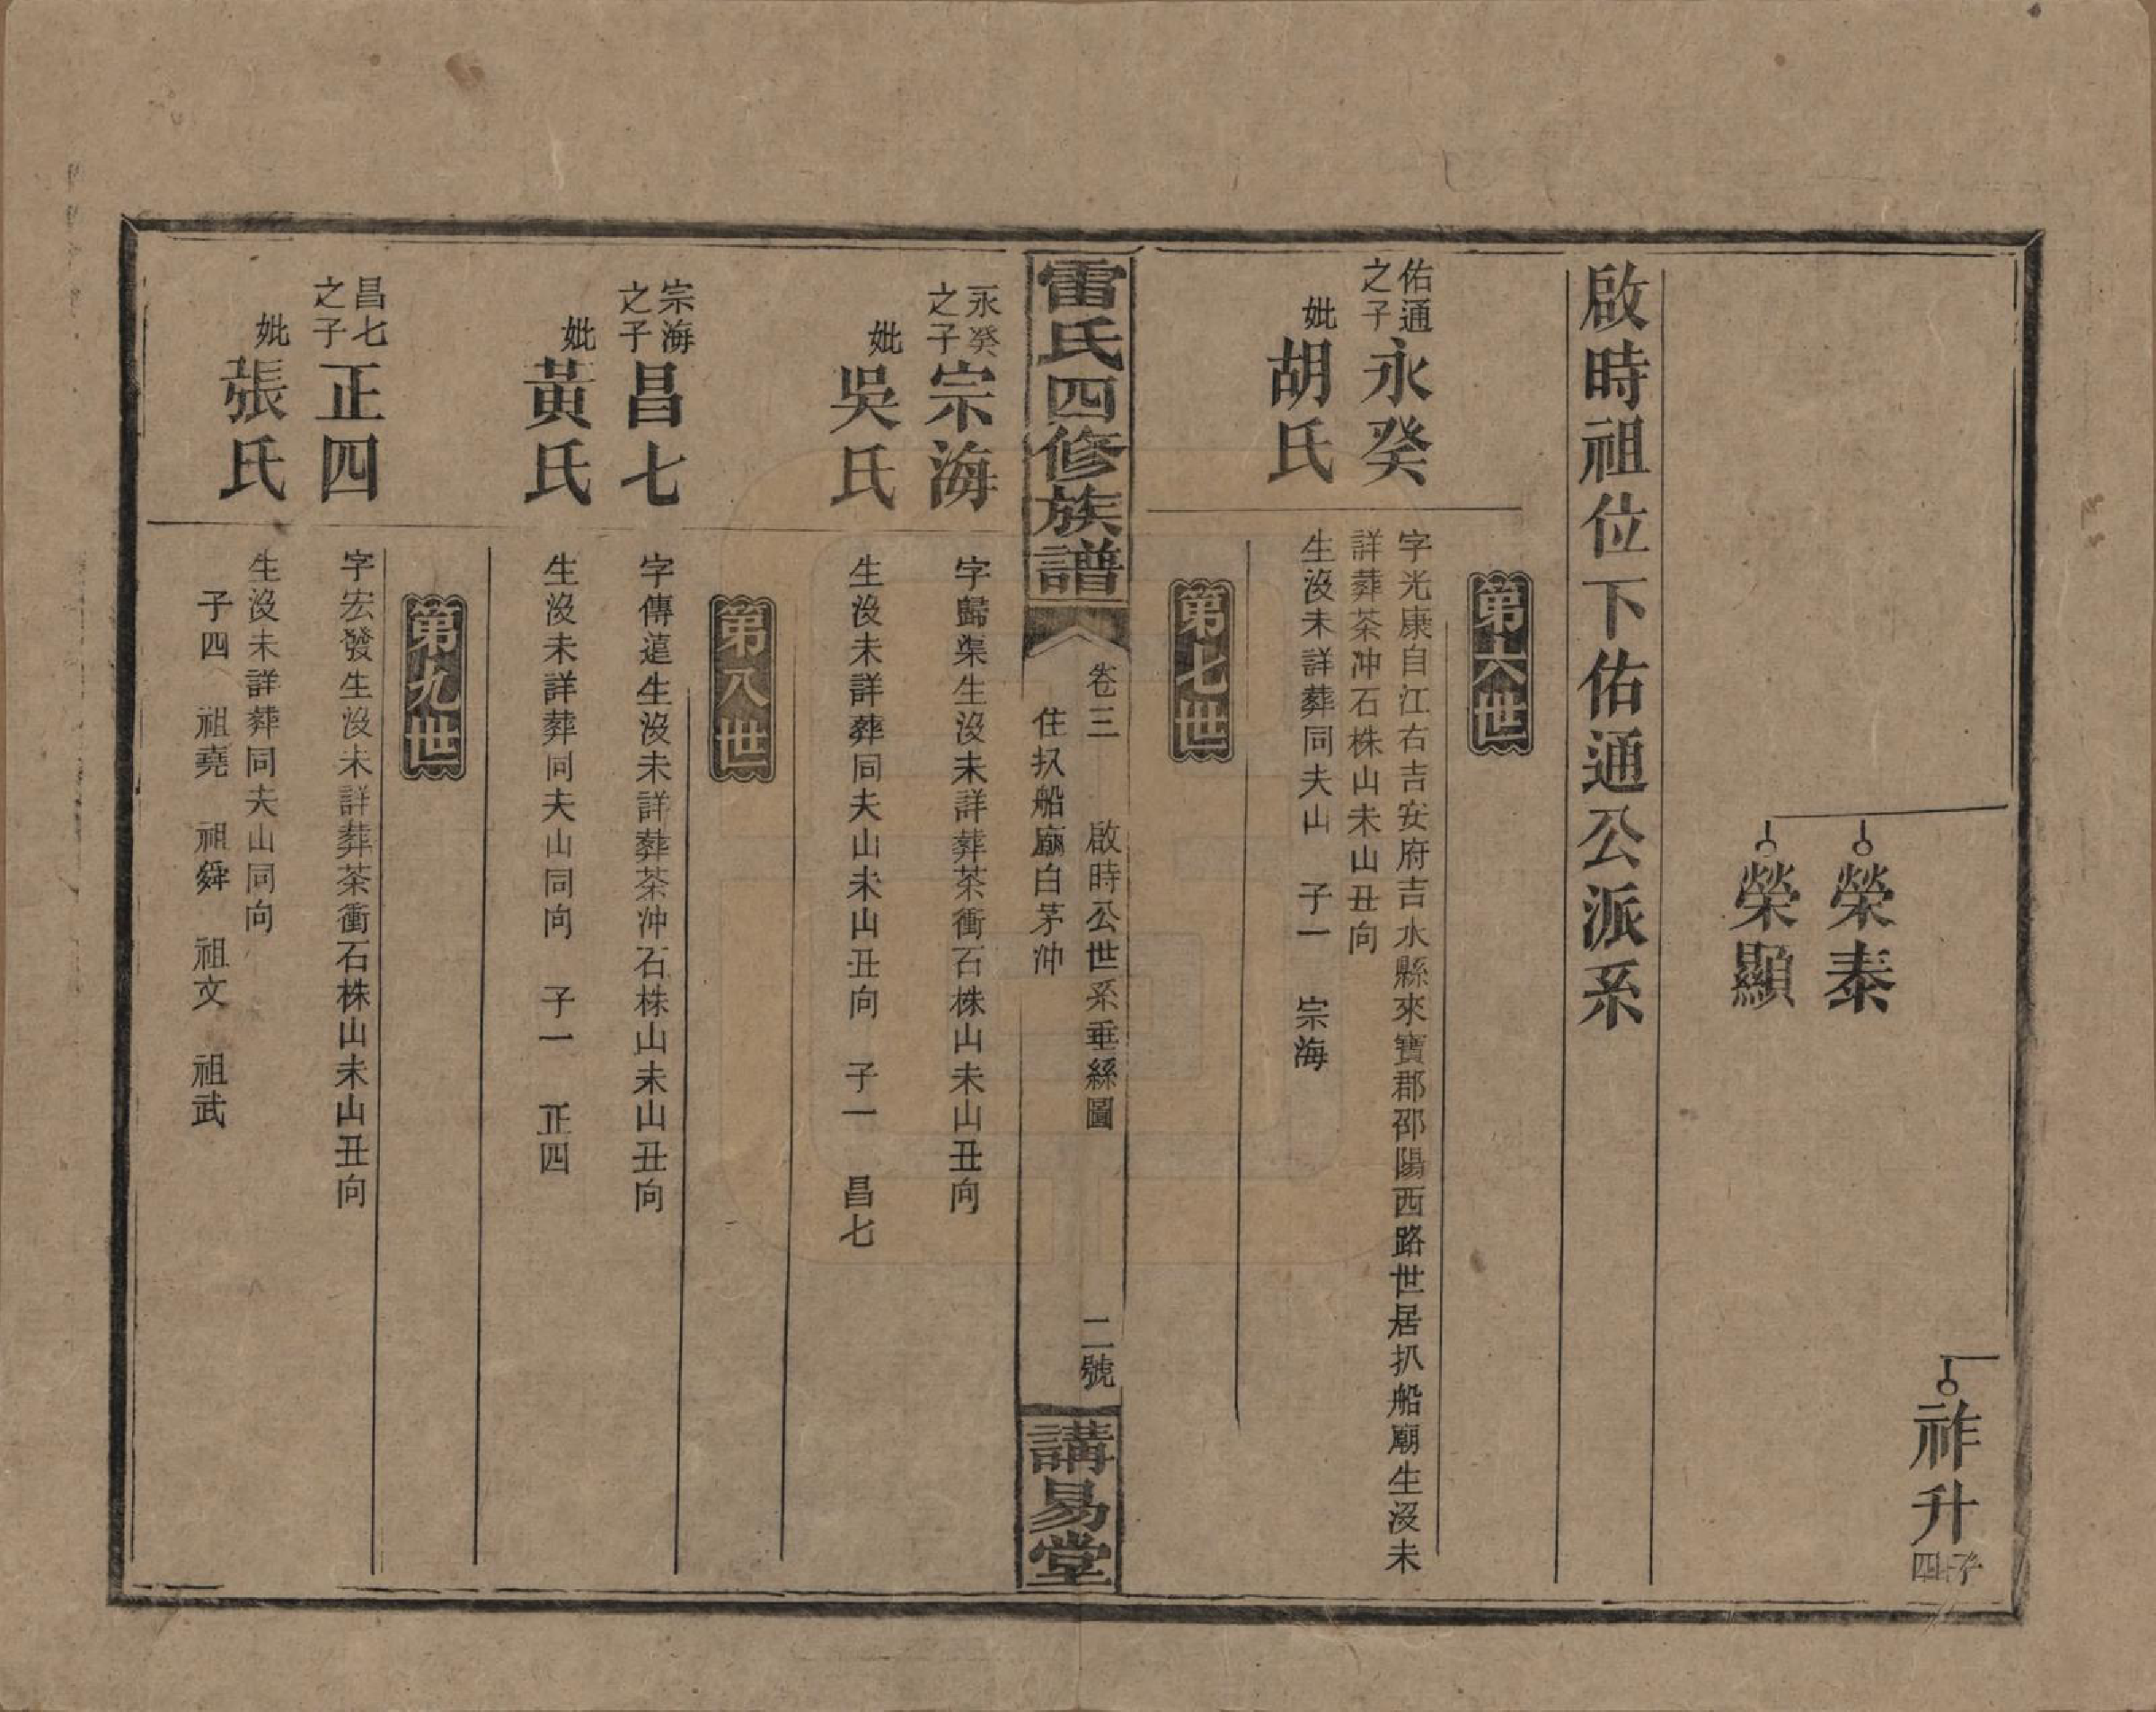 祚升
子
四
榮泰
榮顯
啟時祖位下佑通公派系
第六世
佑通
之子
永癸
字光康自江右吉安府吉水縣來寶郡邵陽西路世居扒船廟生沒未
詳葬茶冲石株山未山丑向
妣
胡氏
生沒未詳葬同夫山 子一 宗海
第七世
雷氏四修族譜
卷三 啟時公世系垂絲圖 二號
住扒船廟白茅冲
講易堂
永癸
之子
宗海
字歸渠生沒未詳葬茶衝石株山未山丑向
妣
吳氏
生沒未詳葬同夫山未山丑向 子一 昌七
第八世
宗海
之子
昌七
字傳蘧生沒未詳葬茶冲石株山未山丑向
妣
黃氏
生沒未詳葬同夫山同向 子一 正四
第九世
昌七
之子
正四
字宏發生沒未詳葬茶衝石株山未山丑向
妣
張氏
生沒未詳葬同夫山同向
子四 祖堯 祖舜 祖文 祖武